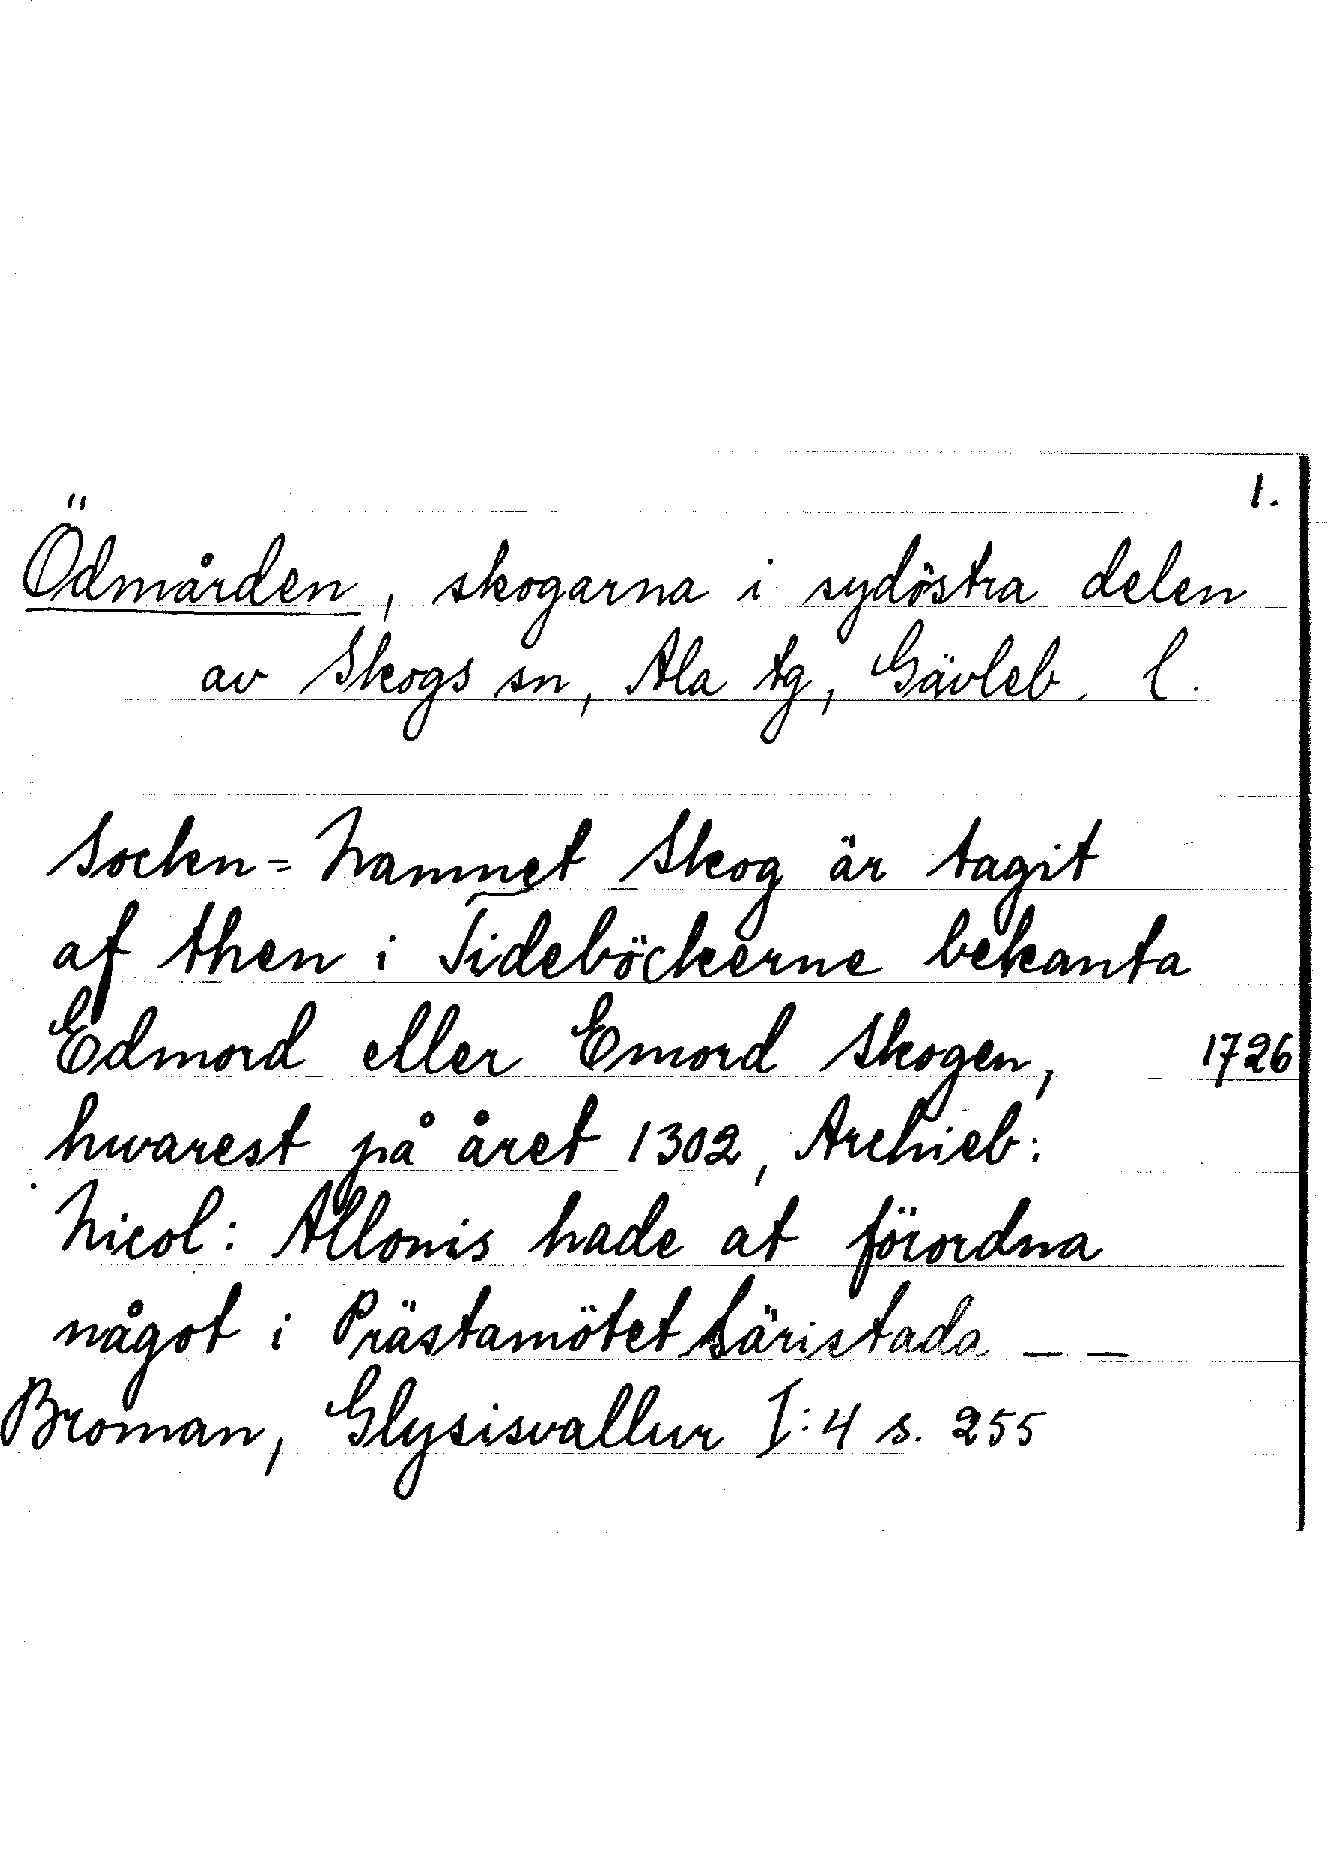 1.
Ödmården, skogarna i sydöstra delen
av Skogs sn, Ala tg, Gävleb. l.
Sockn=Namnet Skog är tagit
af then i Tideböckerne bekanta
Edmord eller Emord Skogen, 1726
hwarest på året 1302, Archieb:
Nicol: Allonis hade at förordna
något i Prästamötet säristada _ _
Broman, Glysisvallur I:4 s. 255